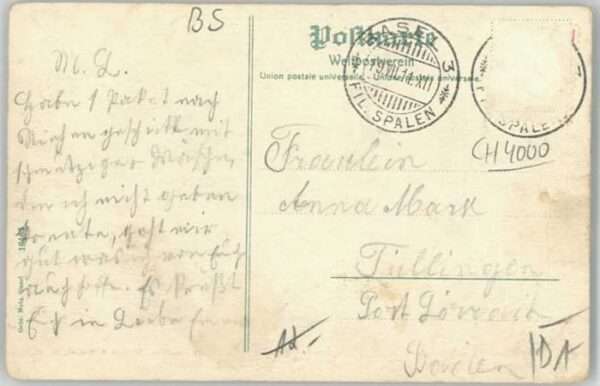 BS
Postkarte
Weltpostverein
Union postale universelle. Unione postale universale.
BASEL 3
FIL. SPALEN
FIL. SPALEN
CH 4000
M. L.
Habe 1 Paket nach
Riehen geschickt mit
schmutziger Wäsche,
ich nicht geben
konnte, geht mir
gut was ich von Euch
auch hoffe. Es grüßt
Euch in Liebe
Fräulein
Anna Mark
Tüllingen
Post Lörrach
Baden